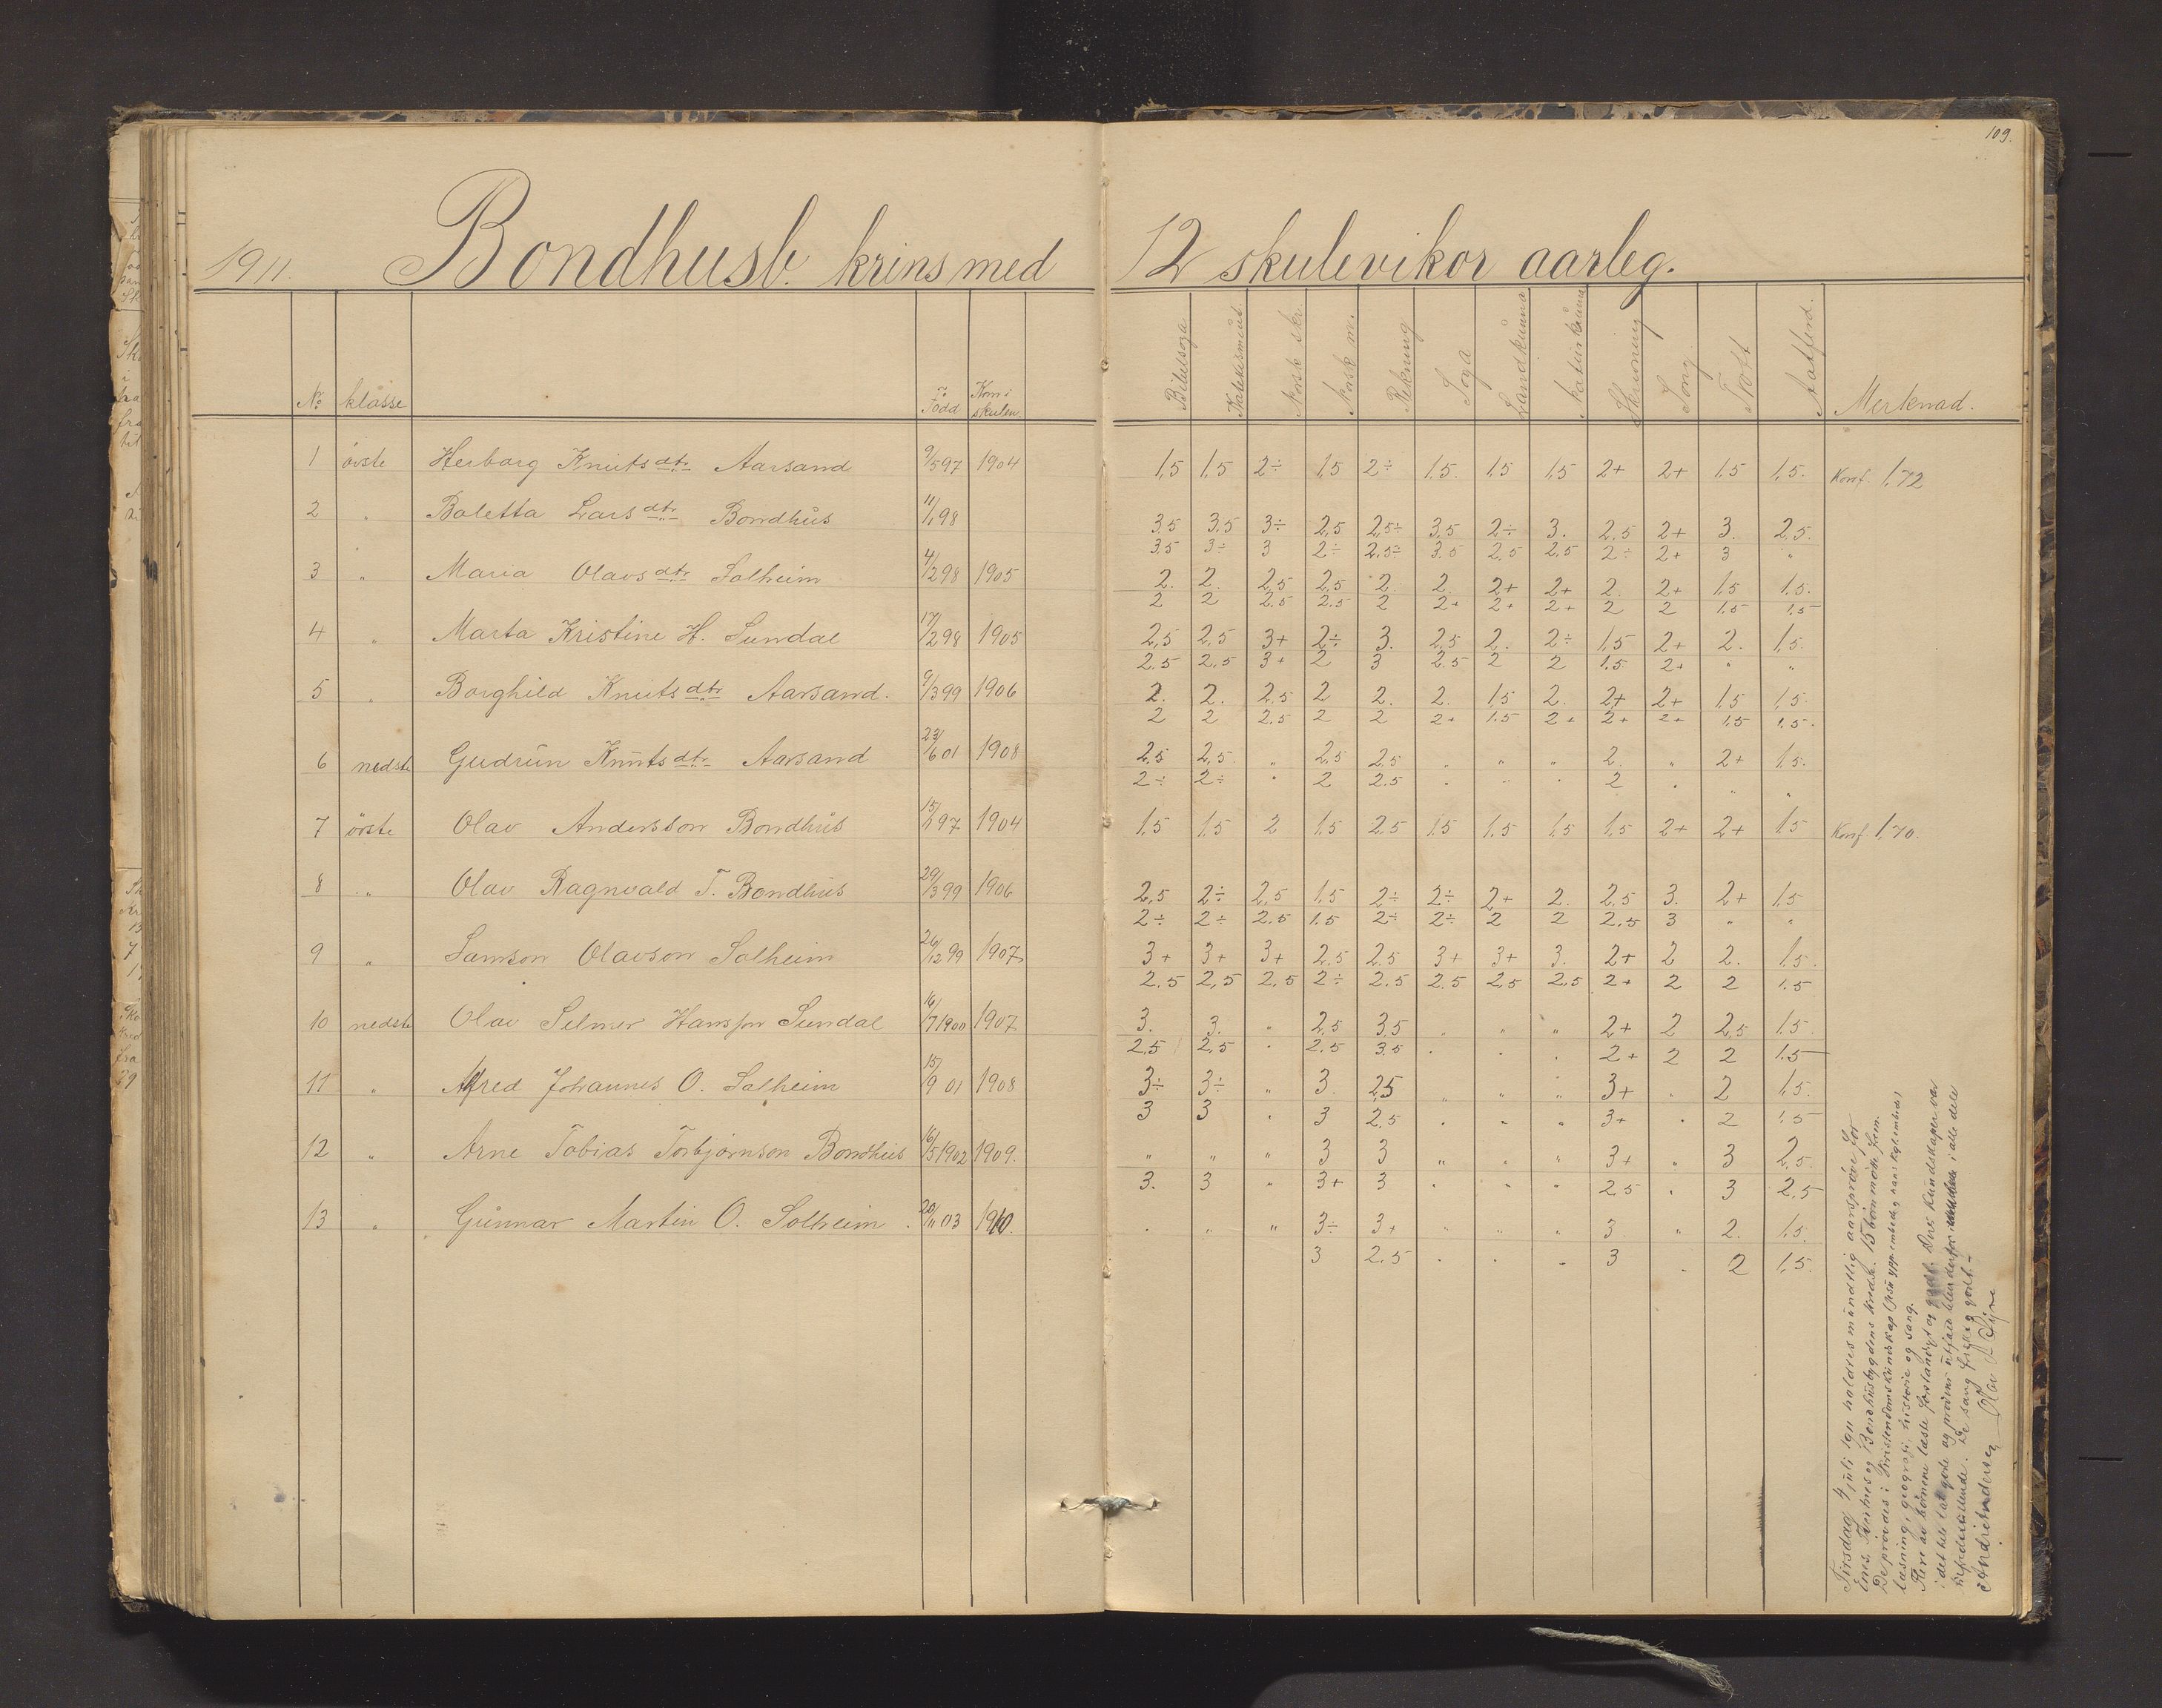 109.
1911. Bondhusb. krins med 12 skulevikor aarleg.
No klasse Född Kom i skulen Bibelsoga Katekismus Norsk skr. Norsk m. Rekning Soga Landkunna Naturkunna Skrivning Song Flott Aatferd. Merknad.
1 övste Herborg Knutsdtr. Aarsand 9/5 97 1904 1,5 1,5 2÷ 1,5 2÷ 1.5. 1.5 1,5 2+ 2+ 1.5 1,5. Konf. 1,72
2 " Boletta Larsdtr. Bondhus 11/1 98 3.5 3.5 3÷ 2,5 2,5÷ 3,5 2÷ 3. 2,5 2+ 3. 2,5.
3.5 3÷ 3 2÷ 2.5÷ 3.5 2.5 2.5 2÷ 2+ 3 "
3 " Maria Olavsdtr. Solheim 4/2 98 1905 2. 2. 2,5 2,5 2. 2. 2+ 2+ 2. 2+ 1,5 1,5.
2 2 2.5 2.5 2 2+ 2+ 2+ 2 2 1.5 1.5
4 " Marta Kristine H. Sundal 17/2 98 1905 2,5 2,5 3+ 2÷ 3. 2,5 2. 2÷ 1,5 2+ 2. 1,5.
2.5 2.5 3+ 2 3 2.5 2 2 1.5 2+ " "
5 " Borghild Knutsdtr. Aarsand. 9/3 99 1906 2. 2. 2,5 2 2. 2. 1,5 2. 2+ 2+ 1,5 1,5.
2 2 2.5 2 2 2+ 1.5 2+ 2+ 2+ 1.5 1.5.
6 nedste Gudrun Knutsdtr. Aarsand 23/6 01 1908 2,5 2,5. " 2,5 2,5 " " " 2. " 2+ 1.5.
2÷ 2÷ " 2 2.5 " " " 2 " " "
7 övste Olav Andersson Bondhus 15/1 97 1904 1,5 1,5 2 1,5 2,5 1,5 1,5 1,5 1,5 2+ 2+ 1,5 Konf. 1,70.
8 " Olav Ragnvald T. Bondhus 29/3 99 1906 2,5 2÷ 2,5 1,5 2÷ 2÷ 2+ 2. 2,5 3. 2+ 1,5
2÷ 2÷ 2.5 1.5 2÷ 2÷ 2 2 2.5 3 " "
9 " Samson Olavson Solheim 26/12 99 1907 3+ 3+ 3+ 2,5 2,5 3+ 3+ 3. 2+ 2 2. 1,5.
2.5 2,5 2,5 2÷ 2.5 2.5 2,5 2,5 2+ 2 2 1.5
10 nedste Olav Selmer Hansson Sundal 16/7 1900 1907. 3. 3. " 2,5 3,5 " " " 2+ 2 2,5 1,5.
2.5 2,5 " 2.5 3.5 " " " 2+ 2 2 1.5
11 " Alfred Johannes O. Solheim 15/9 01 1908 3÷ 3÷ " 3. 2,5 " " " 3+ " 2 1,5.
3 3 " 3 2.5 " " " 3+ " 2 1.5
12 " Arne Tobias Torbjørnson Bondhus 16/5 1902 1909. " " " 3 3 " " " 3+ " 3 2,5.
3. 3 " 3+ 3 " " " 2.5 " 3 2.5
13 " Gunnar Martin O. Solheim. 20/11 03 1910. " " " 3÷ 3+ " " " 3. " 2. 1,5.
3 2.5 " " " 3 " 2 1.5.
Tirsdag 4 juli 1911 holdtes mundtlig aarsprøve for
Enes, Tveitnes og Bondhusbygdens kreds. 15 børn møtte frem.
De prøvdes i kristendomskundskap
læsning, geografi, historie og sang.
Flere av børnene læste forstandigt og godt. Deres kundskaper var
i det hele tat gode og prøvens utfald blev derfor i alle dele
tilfredsstillende. De sang frygtelig godt.
Andersen Olav